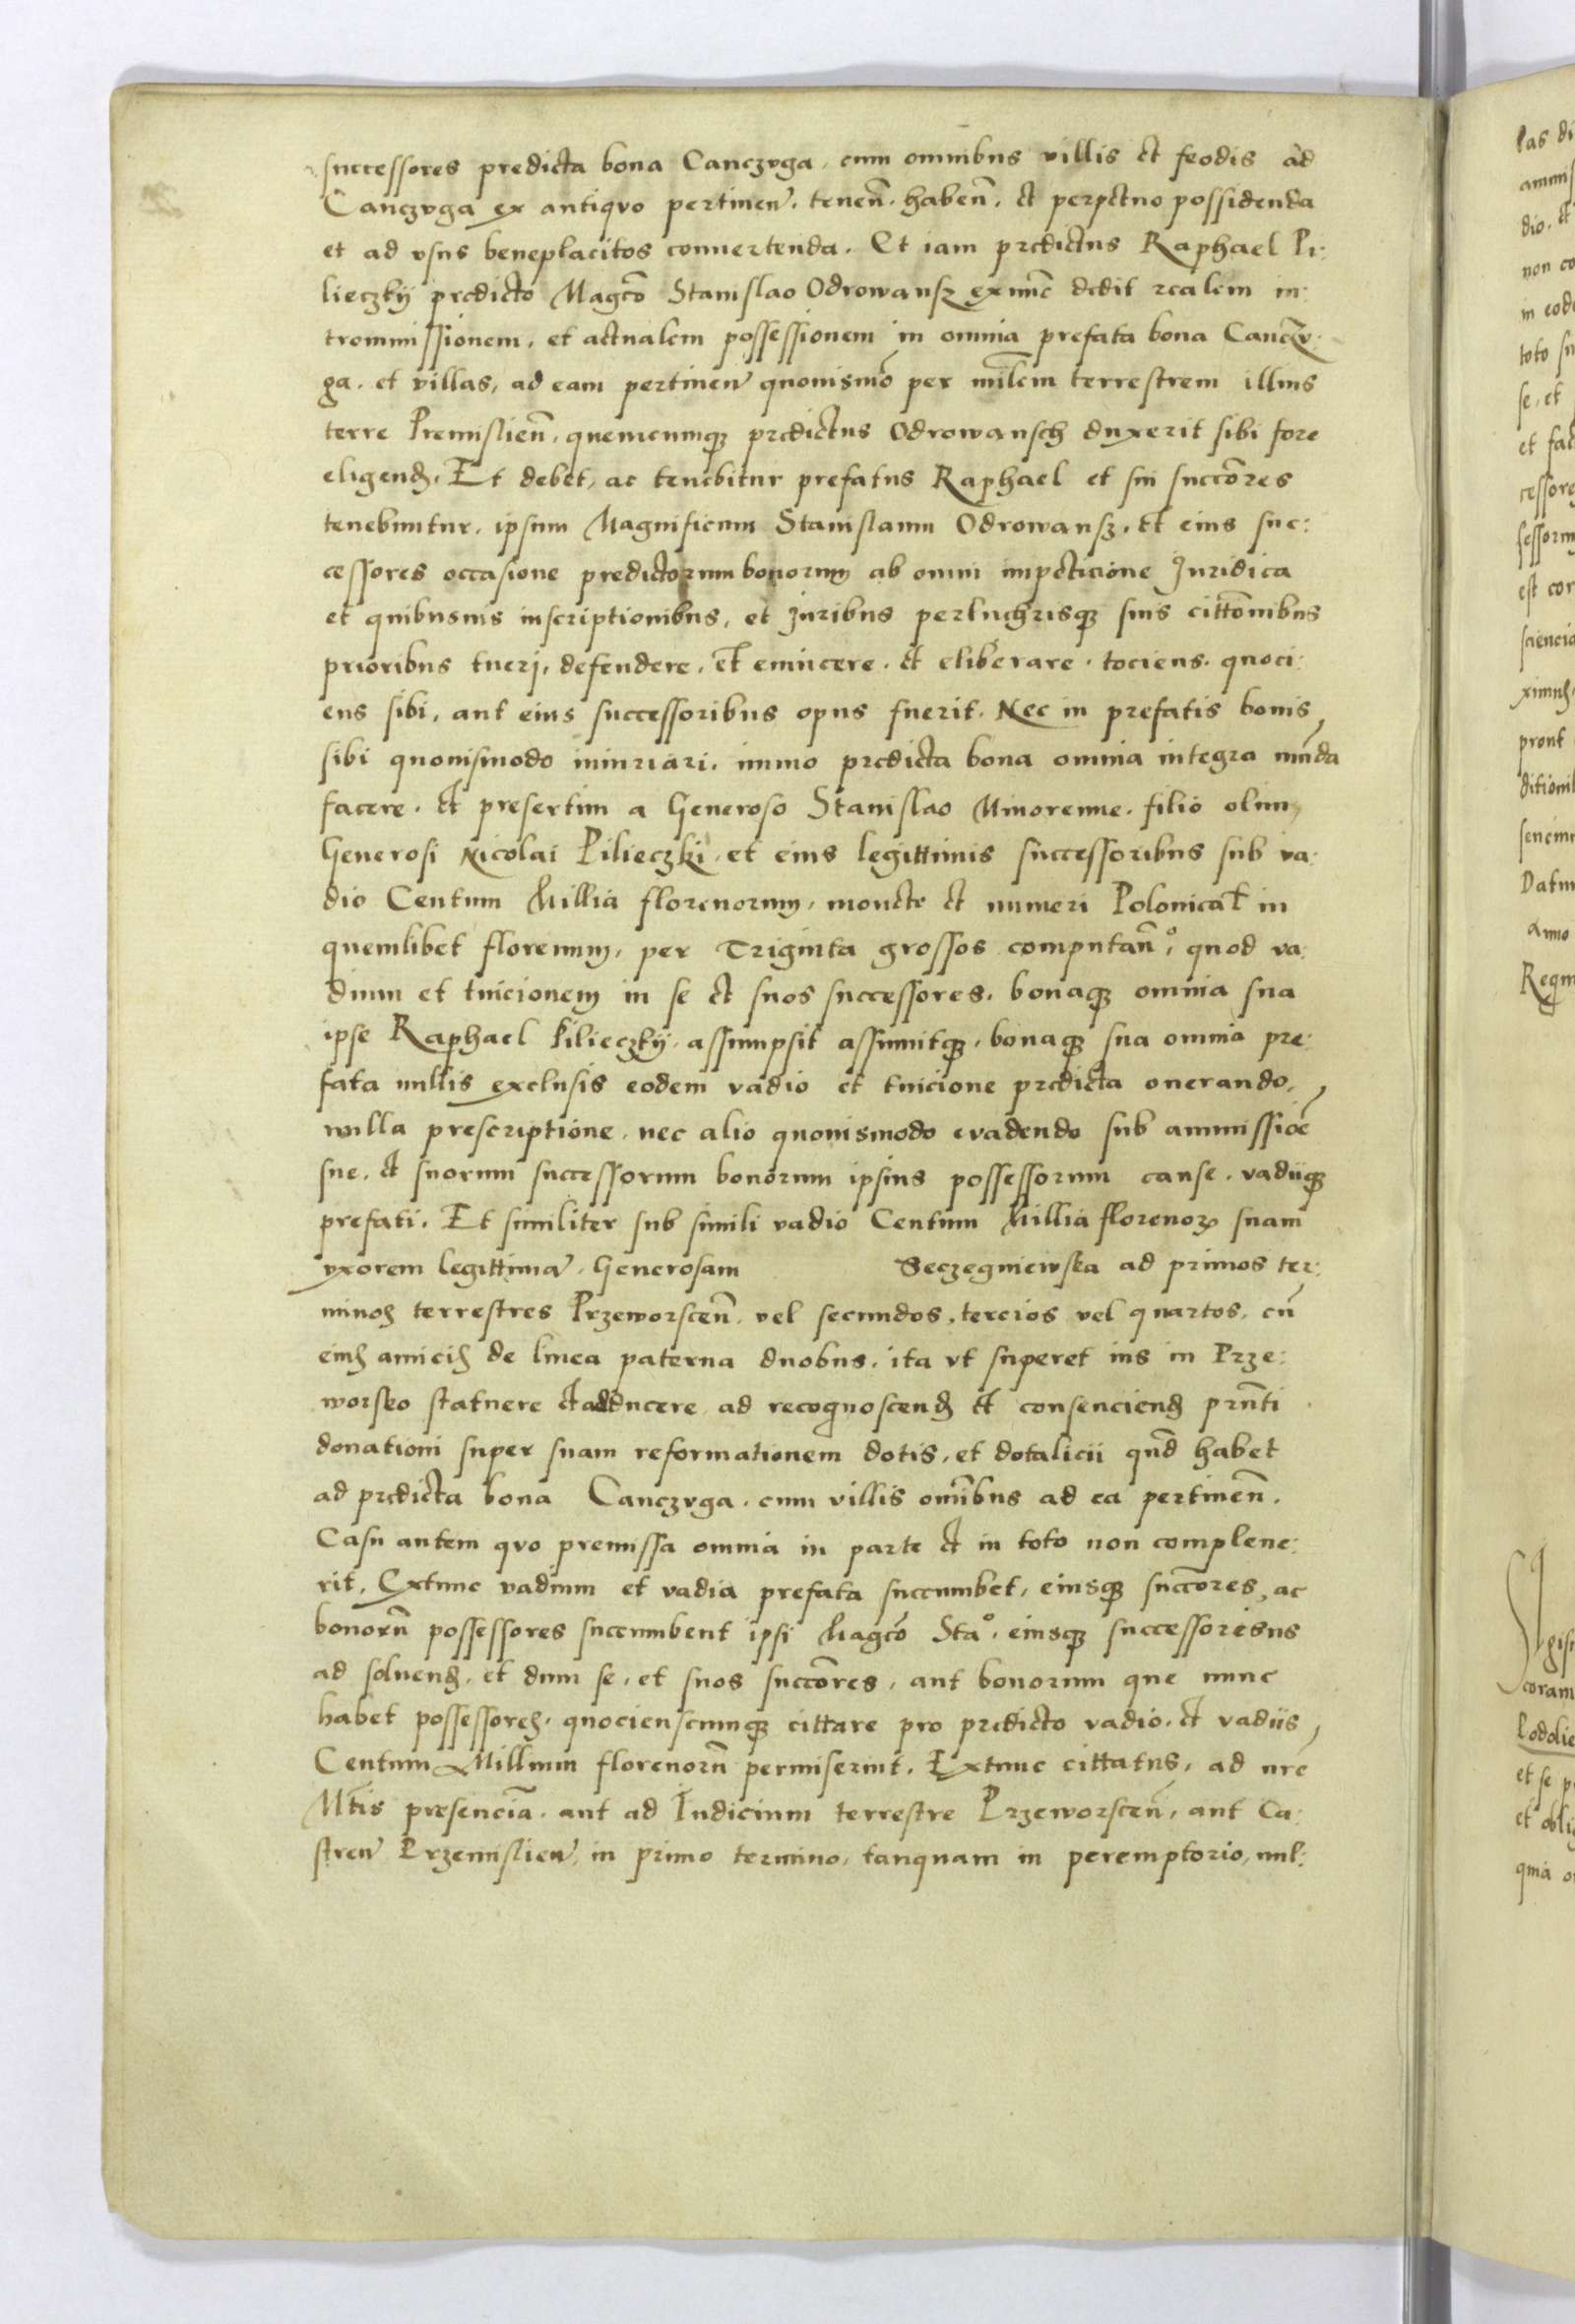 successores predicta bona Canczvga, cum omnibus villis et feodis ad
Canczvga ex antiqvo pertinen̄. tenen̄. haben̄. et perpetuo possidenda
et ad vsus beneplacitos conuertenda. Et iam predictus Raphael Pi:
lieczkÿ predicto Magco̅ Stanislao Odrowansz exnunc dedit realem in:
trommissionem, et actualem possessionem in omnia prefata bona Canczv:
ga. et villas, ad eam pertinen̄ quouismo̅ per milem̅ terrestrem illius
terre Premislien̄, quemcumq3 predictus Odrowansch duxerit sibi fore
eligend̄. Et debet, ac tenebitur prefatus Raphael et sui succores̅
tenebuntur. ipsum Magnificum Stanislaum Odrowansz. et eius suc:
cessores occasione predictorum bonorum ab omni impeticione Juridica
et quibusuis inscriptionibus, et juribus perlucrisq3 suis citto̅nibus
prioribus tueri, defendere. et euincere. et eliberare. tociens. quoci:
ens sibi, aut eius successoribus opus fuerit. Nec in prefatis bonis
sibi quouismodo iniuriari. immo predicta bona omnia integra mu̅da
facere. et presertim a Generoso Stanislao Minorenne. filio olim
Generosi Nicolai Pilieczki, et eius legittimis successoribus sub va:
dio Centum Millia florenorum, monete et numeri Polonicat̅ in
quemlibet florenum, per Triginta grossos computan̄°, quod va:
dium et tuicionem in se et suos successores. bonaq3 omnia sua
ipse Raphael Pilieczkÿ. assumpsit assumitq3. bonaq3 sua omnia pre:
fata nullis exclusis eodem vadio et tuicione predicta onerando,
nulla prescriptione. nec alio quouismodo evadendo sub ammissioe̅
sue. et suorum successorum bonorum ipsius possessorum cause. vadiiq3
prefati. Et similiter sub simili vadio Centum Millia florenoꝝ suam
vxorem legittima̅. Generosam Seczegniewska ad primos ter:
minos terrestres Przeworscen̄. vel secundos, tercios vel quartos. cu̅
eius amicis de linea paterna duobus. ita vt superet ius in Prze:
worsko statuere et adducere ad recognoscend̄ et consenciend̄ pn̅ti
donationi super suam reformationem dotis. et dotalicii qu̅d habet
ad predicta bona Canczvga. cum villis omi̅bus ad ea pertinen̄.
Casu autem qvo premissa omnia in parte et in toto non compleue:
rit, Extunc vadium et vadia prefata succumbet, eiusq3 succo̅res, ac
bonoru̅ possessores succumbent ipsi Magco̅ Sta°. eiusq3 successorisus
ad soluend̄. et dum se, et suos succo̅res, aut bonorum que nunc
habet possessores. quociensc̣umq3 cittare pro predicto vadio. et vadiis
Centum Millium florenoru̅ permiserint. Extunc cittatus, ad nre̅
Mtis̅ presencia̅. aut ad Iudicium terrestre Przeworscen̄, aut Ca:
stren̄ Przemislien̄, in primo termino, tanquam in peremptorio, nul: